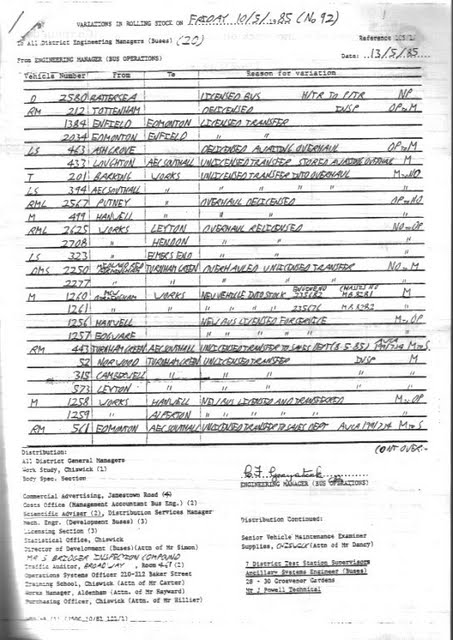 VARIATIONS IN ROLLING STOCK ON FRIDAY 10/5/1985 (No 92)
To All District Engineering Managers (Buses) (20) Reference
From ENGINEERING MANAGER (BUS OPERATIONS) Date: 13/5/85
Vehicle Number From To Reason for variation
D 2580 BATTERSEA LICENSED BUS H/TR TO P/TR NP
RM 212 TOTTENHAM DELICENSED INSP OP TO M
1384 ENFIELD EDMONTON LICENSED TRANSFER
2034 EDMONTON ENFIELD " "
LS 463 ASHGROVE DELICENSED AWAITING OVERHAUL OP TO M
LS 433 LOUGHTON AEC SOUTHALL UNLICENSED TRANSFER STORED AWAITING OVERHAUL M
T 201 BARKING WORKS UNLICENSED TRANSFER INTO OVERHAUL M TO NO
LS 394 AEC SOUTHALL " " " "
RML 2567 PUTNEY " OVERHAUL DELICENSED OP TO NO
M 499 HANWELL " " " "
RML 2625 WORKS LEYTON OVERHAUL RELICENSED NO TO OP
2708 " HENDON " " "
LS 323 " ELMERS END " " "
DMS 2250 TURNHAM GREEN OVERHAULED UNLICENSED TRANSFER NO TO M
2277 " " " " "
M 1260 MCW BIRMINGHAM WORKS NEW VEHICLE INTO STOCK ENGINE NO 235682 CHASSIS NO MB8281 M
1261 " " " " 235676 MB8282 "
1256 HANWELL NEW BUS LICENSED FOR SERVICE M TO OP
1257 EDGWARE " " " "
RM 443 TURNHAM GREEN AEC SOUTHALL UNLICENSED TRANSFER TO SALES DEPT (8-5-85) M TO S
52 NORWOOD TURNHAM GREEN UNLICENSED TRANSFER INSP M
315 CAMBERWELL " " " " "
573 LEYTON " " " " "
M 1258 WORKS HANWELL NEW BUS LICENSED AND TRANSFERRED M TO OP
1259 " ALPERTON " " " "
RM 561 EDMONTON AEC SOUTHALL UNLICENSED TRANSFER TO SALES DEPT M TO S
CONT OVER-
Distribution:
All District General Managers
Work Study, Chiswick (1)
Body Spec. Section
ENGINEERING MANAGER (BUS OPERATIONS)
Commercial Advertising, Jamestown Road (4)
Costs Office (Management Accountant Bus Eng.) (2)
Scientific Adviser (2), Distribution Services Manager
Mech. Engr. (Development Buses) (3) Distribution Continued:
Licensing Section (3)
Statistical Office, Chiswick Senior Vehicle Maintenance Examiner
Director of Development (Buses)(Attn of Mr Simon) Supplies, CHISWICK (Attn of Mr Dancy)
INSPECTION COMPOUND
Traffic Auditor, BROADWAY, Room 7 District Test Station Supervisors
Operations Systems Officer 210-212 Baker Street Ancillary Systems Engineer (Buses)
Training School, Chiswick (Attn of Mr Carter) 28 - 30 Grosvenor Gardens
Works Manager, Aldenham (Attn. of Mr Hayward) Mr J Powell Technical
Purchasing Officer, Chiswick (Attn of Mr Hillier)